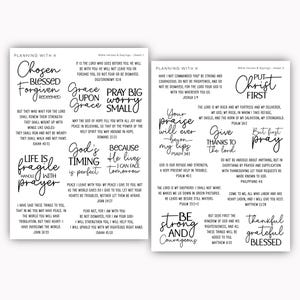 PLANNING WITH K
Chosen
BLESSED
Forgiven
REDEEMED
IT IS THE LORD WHO GOES BEFORE YOU. HE WILL
BE WITH YOU; HE WILL NOT LEAVE YOU OR
FORSAKE YOU. DO NOT FEAR OR BE DISMAYED.
DEUTERONOMY 31:8
Grace
UPON
Grace
PRAY BIG
worry
SMALL
BUT THEY WHO WAIT FOR THE LORD SHALL
RENEW THEIR STRENGTH
THEY SHALL MOUNT UP WITH
WINGS LIKE EAGLES
THEY SHALL RUN AND NOT BE WEARY
THEY SHALL WALK AND NOT FAINT.
ISAIAH 40:31
MAY THE GOD OF HOPE FILL YOU WITH ALL JOY AND
PEACE IN BELIEVING, SO THAT BY THE POWER OF THE
HOLY SPIRIT YOU MAY ABOUND IN HOPE.
ROMANS 15:13
LIFE IS
fragile
HANDLE WITH
prayer
God's
TIMING
is perfect
Because
He lives
I CAN FACE
tomorrow
PEACE I LEAVE WITH YOU; MY PEACE I GIVE TO YOU. NOT
AS THE WORLD GIVES DO I GIVE TO YOU. LET NOT YOUR
HEARTS BE TROUBLED, NEITHER LET THEM BE AFRAID.
JOHN 14:27
I HAVE SAID THESE THINGS TO YOU,
THAT IN ME YOU MAY HAVE PEACE. IN
THE WORLD YOU WILL HAVE
TRIBULATION. BUT TAKE HEART; I
HAVE OVERCOME THE WORLD.
JOHN 16:33
FEAR NOT, FOR I AM WITH YOU;
BE NOT DISMAYED, FOR I AM YOUR GOD;
I WILL STRENGTHEN YOU, I WILL HELP YOU,
I WILL UPHOLD YOU WITH MY RIGHTEOUS RIGHT HAND.
ISAIAH 41:10
PLANNING WITH K
HAVE I NOT COMMANDED YOU? BE STRONG AND
COURAGEOUS. DO NOT BE FRIGHTENED, AND DO
NOT BE DISMAYED, FOR THE LORD YOUR GOD IS
WITH YOU WHEREVER YOU GO.
JOSHUA 1:9
PUT
Christ
FIRST
THE LORD IS MY ROCK AND MY FORTRESS AND MY DELIVERER,
MY GOD, MY ROCK, IN WHOM I TAKE REFUGE, MY SHIELD,
AND THE HORN OF MY SALVATION, MY STRONGHOLD.
PSALM 18:2
Your
praise
will ever
be on
my lips
PSALM 34:1
Give
THANKS TO
the lord
But first
pray
GOD IS OUR REFUGE AND STRENGTH,
A VERY PRESENT HELP IN TROUBLE.
PSALM 46:1
DO NOT BE ANXIOUS ABOUT ANYTHING, BUT IN
EVERYTHING BY PRAYER AND SUPPLICATION
WITH THANKSGIVING LET YOUR REQUESTS BE
MADE KNOWN TO GOD.
PHILIPPIANS 4:6
THE LORD IS MY SHEPHERD; I SHALL NOT WANT.
HE MAKES ME LIE DOWN IN GREEN PASTURES.
HE LEADS ME BESIDE STILL WATERS.
PSALM 23:1-2
COME TO ME, ALL WHO LABOR AND ARE
HEAVY LADEN, AND I WILL GIVE YOU REST.
MATTHEW 11:28
BE
strong
AND
Courageous
BUT SEEK FIRST THE
KINGDOM OF GOD AND HIS
RIGHTEOUSNESS, AND ALL
THESE THINGS WILL BE
ADDED TO YOU.
MATTHEW 6:33
thankful
grateful
BLESSED